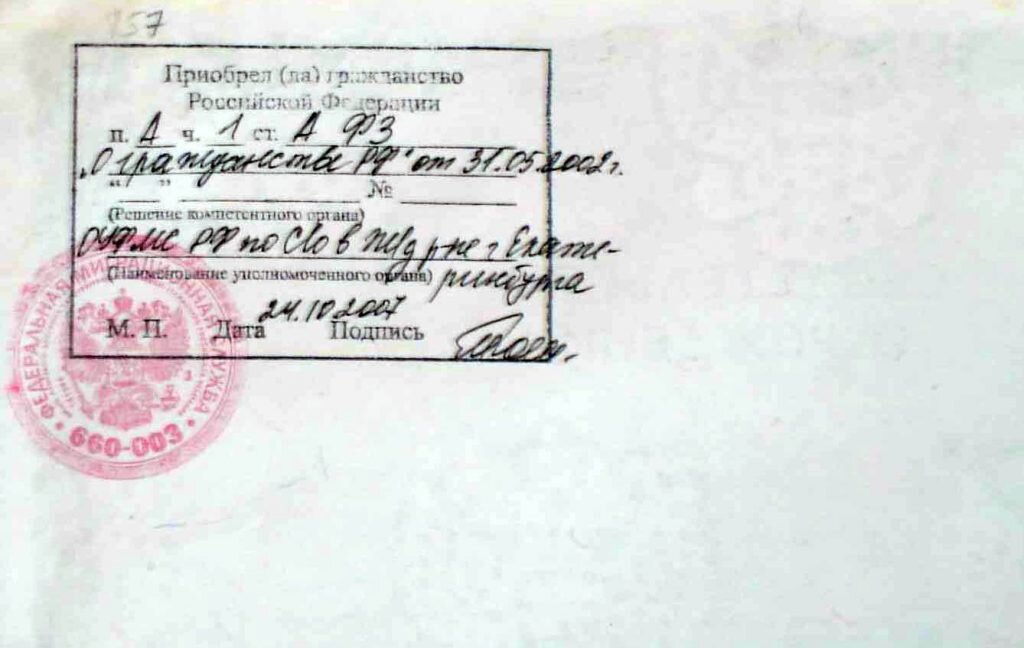 57
Приобрел (ла) гражданство
Российской Федерации
п. А ч. 1 ст. А ФЗ
„О гражданстве РФ" от 31.05.2002 г.
"__" № 
(Решение компетентного органа)
ОУФМС РФ по СО в ЖД р-не г Екате-
(Наименование уполномоченного органа) ринбурга
24.10.2007
М. П. Дата Подпись
ФЕДЕРАЛЬНАЯ МИГРАЦИОННАЯ СЛУЖБА
660-003